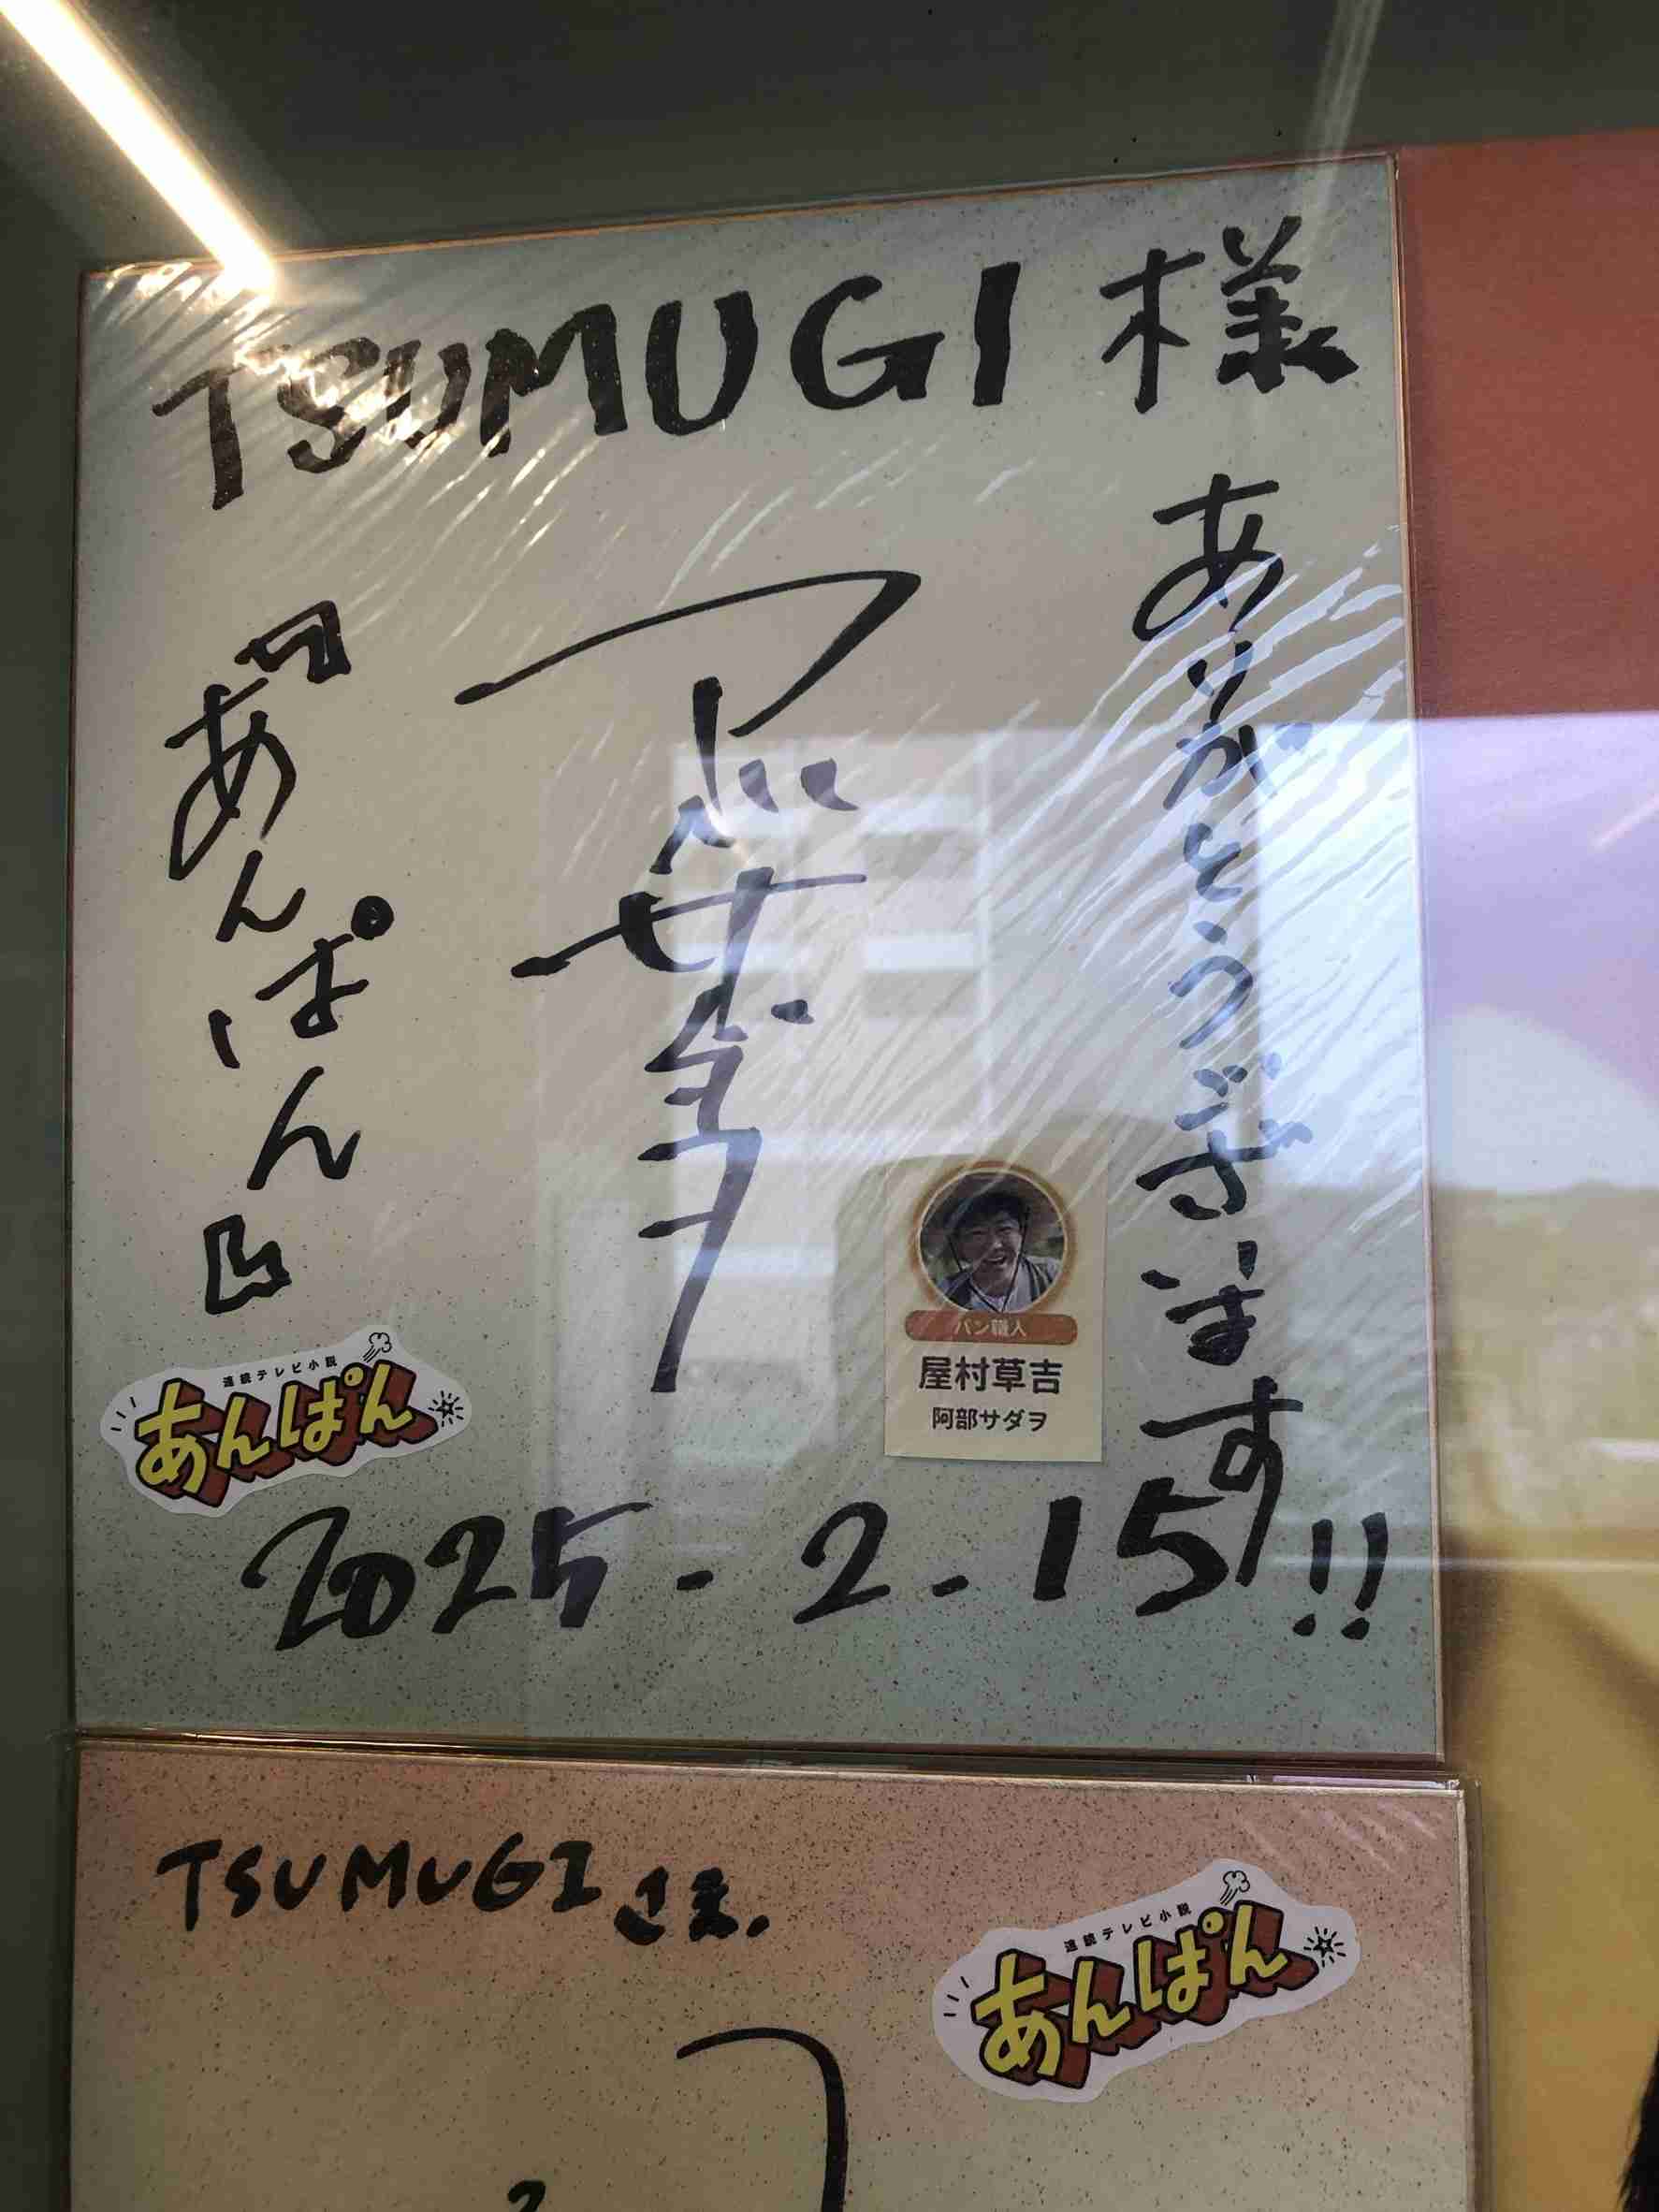 TSUMUGI 様
ありがとうございます!!
阿部サダヲ
『あんぱん』
パン職人
屋村草吉
阿部サダヲ
連続テレビ小説
あんぱん
2025-2-15
TSUMUGI さま.
連続テレビ小説
あんぱん